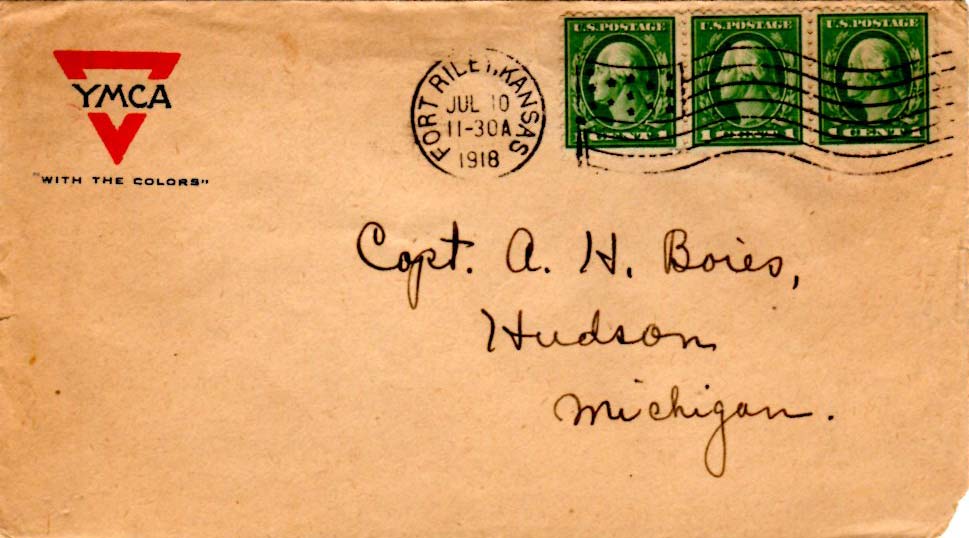 YMCA
"WITH THE COLORS"
FORT RILEY, KANSAS
JUL 10
11-30A
1918
U.S. POSTAGE
CENT
U.S. POSTAGE
1 CENT 1
U.S. POSTAGE
1 CENT 1
Capt. A. H. Boies,
Hudson
Michigan.